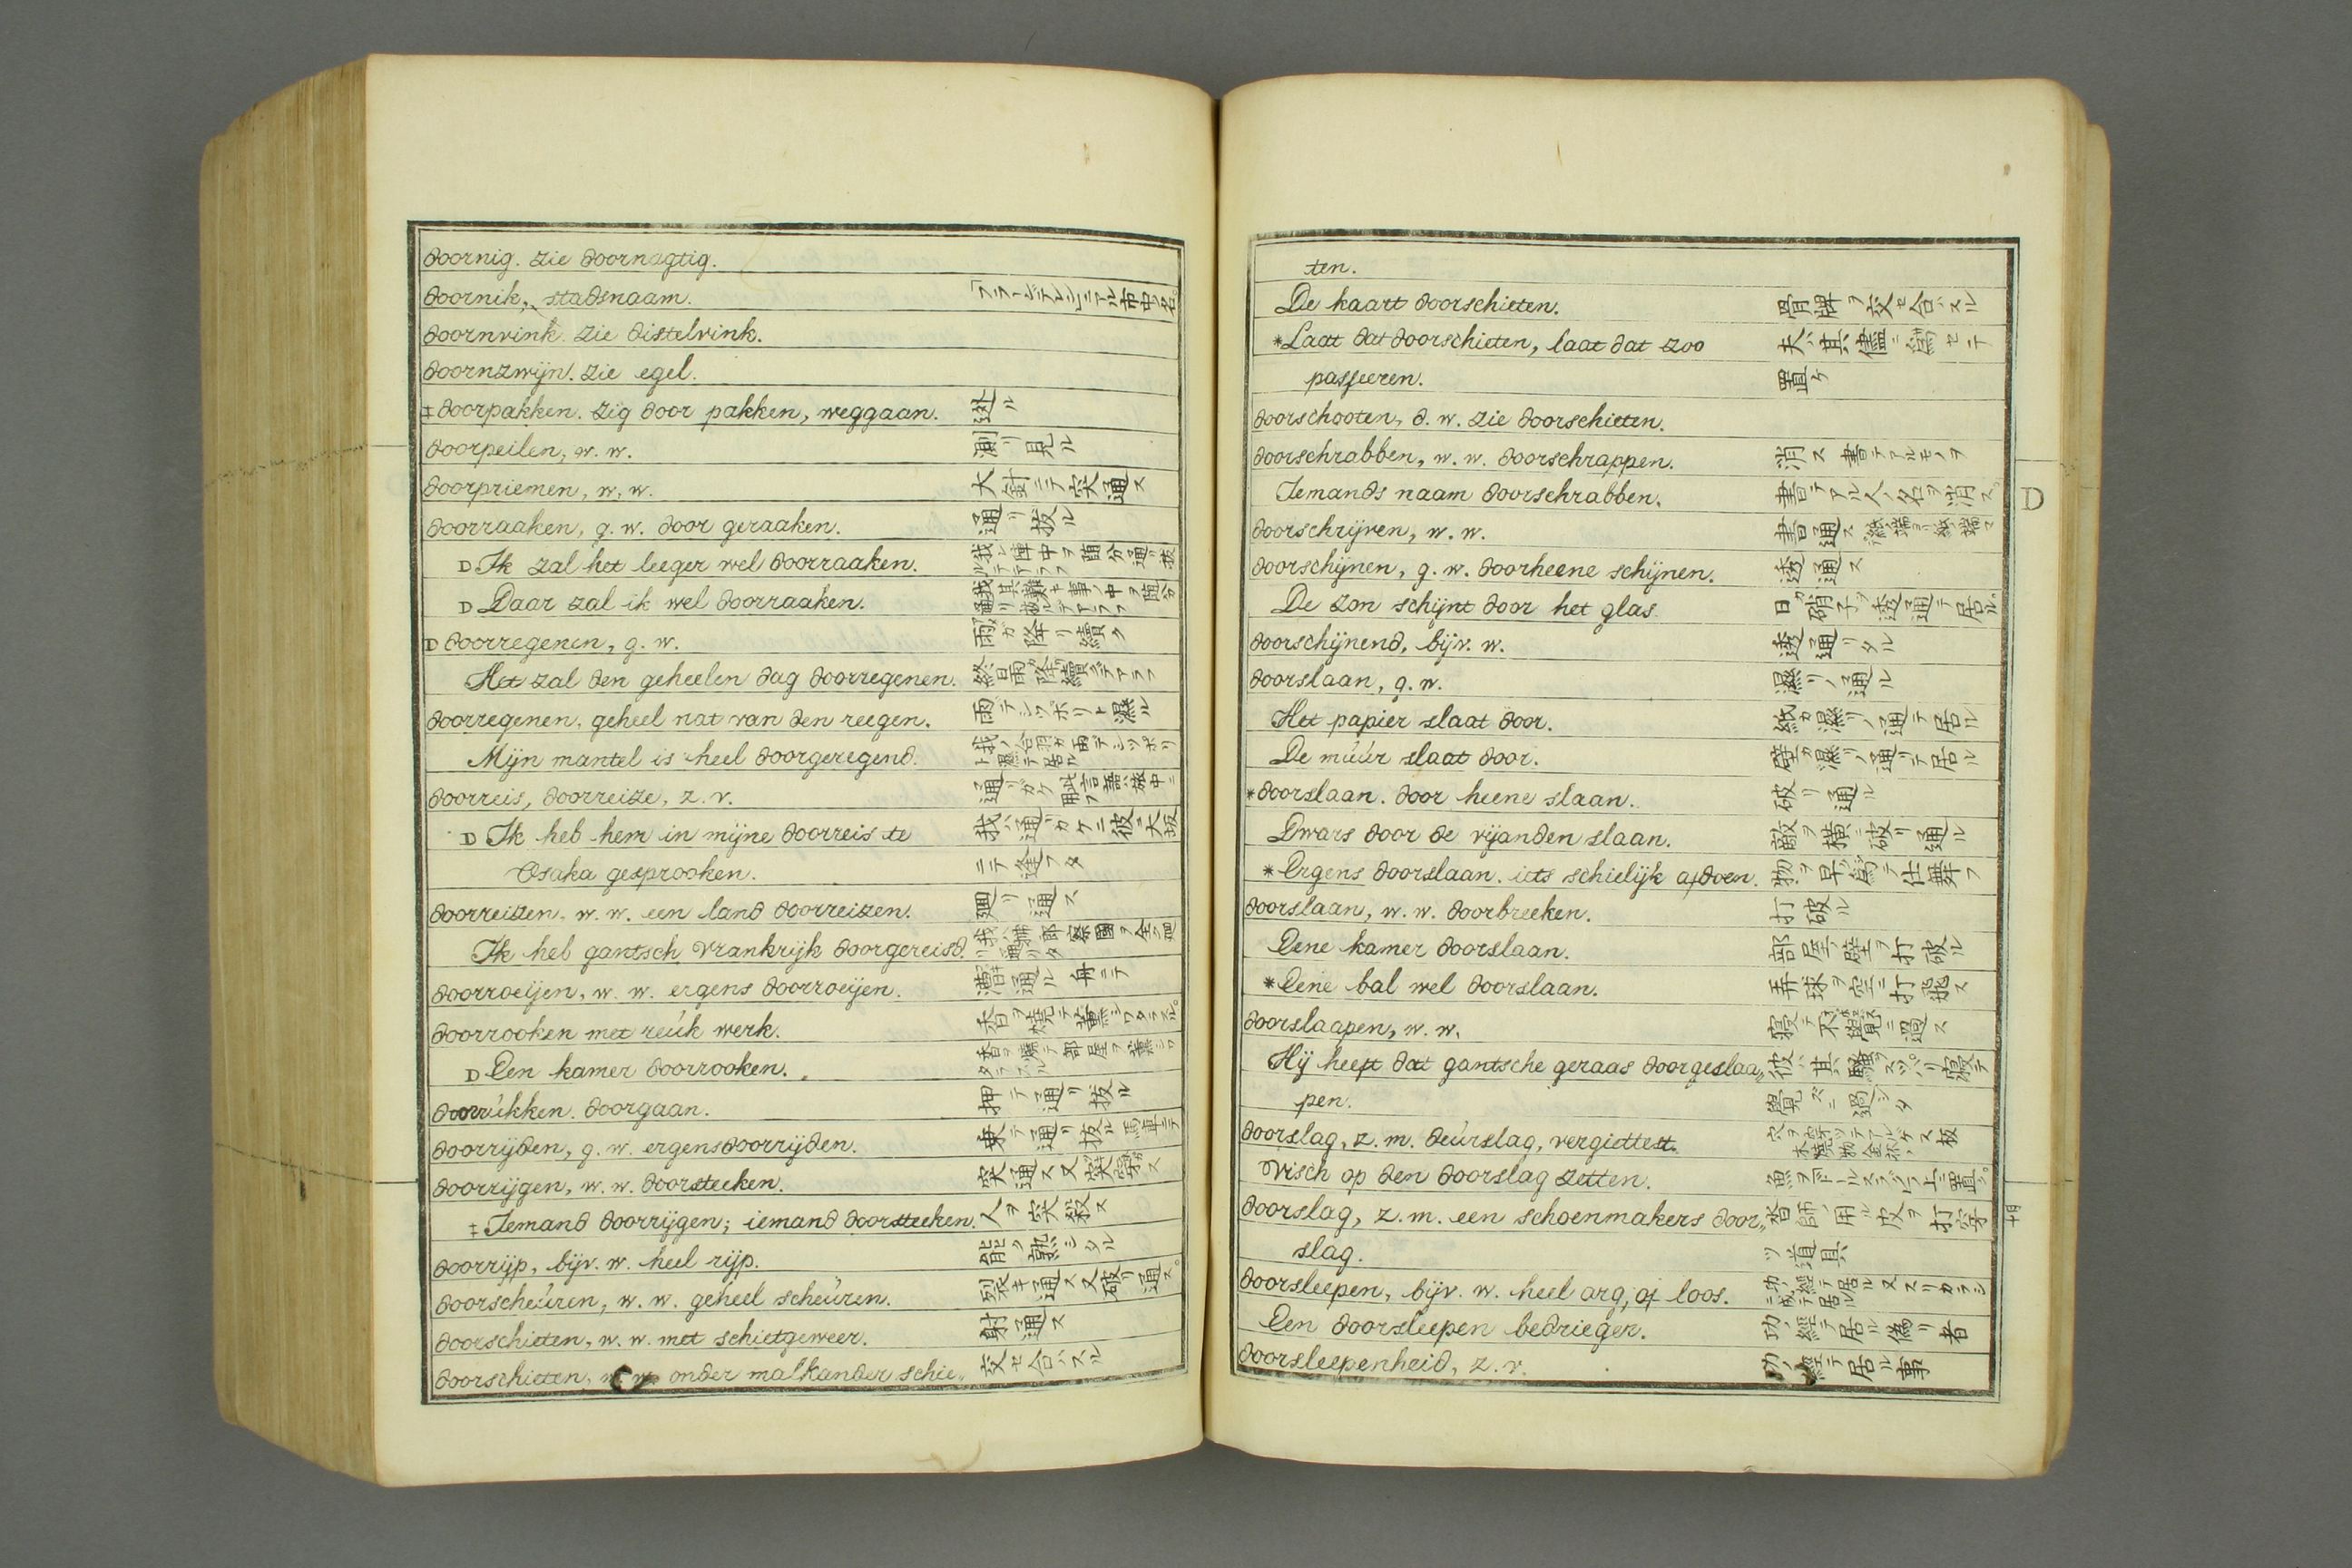 doornig. zie doornagtig.
doornik, stadsnaam. 「フラーンデレン」ニアル市中ノ名。
doornvink. zie distelvink.
doornzwijn. zie egel.
‡doorpakken. zig door pakken, weggaan. 逃ル
doorpeilen, w. w. 測リ見ル
doorpriemen, w. w. 大針ニテ突通ス
doorraaken, g. w. door geraaken. 通リ抜ル
D Ik zal het leeger wel doorraaken. 我レ陣中ヲ随分通リ抜ルテアラフ
D Daar zal ik wel doorraaken. 我其難キ事ノ中ヲ随分通リ抜ルデアラフ
D doorregenen, g. w. 雨ガ降リ續ク
Het zal den geheelen dag doorregenen. 終日雨降續テアラフ
doorregenen. geheel nat van den reegen. 雨テシツポリト濕ル
Mijn mantel is heel doorgeregend. 我ノ合羽ガ雨デシツポリト濕テ居ル
doorreis, doorreize, z. v. 通リガケ 此言語旅中ニ用フ
D Ik heb hem in mijne doorreis te 我ハ通リガケニ彼ニ大坂
Osaka gesprooken. ニテ逢フタ
doorreizen. w. w. een land doorreizen. 廻リ通ス
Ik heb gantsch Vrankrijk doorgereisd. 我ハ拂郎察國ヲ全ク廻リ通リタ
doorroeijen, w. w. ergens doorroeijen. 漕キ通ル 舟ニテ
doorrooken met reúk werk. 香ヲ燒テ薫シワタラスル。
D Een kamer doorrooken. 香ヲ燻テ部屋ヲ薫シワタラスル
doorrúkken. doorgaan. 押テ通リ抜ル
doorrijden, g. w. ergens doorrijden. 乗テ通リ抜ル馬車ニテ
doorrijgen, w. w. doorsteeken. 突通ス又突穿ス
‡Iemand doorrijgen; iemand doorsteeken. 人ヲ突殺ス
doorrijp, bijv. w. heel rijp. 能ク熟シタル
doorscheúren, w. w. geheel scheúren. 裂キ通ス又破リ通ス。
doorschieten, w. w. met schietgeweer. 射通ス
doorschieten, w. w. onder malkander schie„ 交セ合ハスル
ten.
De kaart doorschieten. 骨牌ヲ交セ合ハスル
*Laat dat doorschieten, laat dat zoo 夫ハ其儘ニ為セテ
passeeren. 置ケ
doorschooten, d. w. zie doorschieten.
doorschrabben, w. w. doorschrappen. 消ス 書テアルモノヲ
Iemands naam doorschrabben. 書テアル人ノ名ヲ消ス。
doorschrijven, w. w. 書通ス 紙端ヨリ紙端マデ
doorschijnen, g. w. doorheene schijnen. 透通ス
De zon schijnt door het glas. 日ガ硝子ヲ透通テ居ル。
doorschijnend, bijv. w. 透通リタル
doorslaan, g. w. 濕リノ通ル
Het papier slaat door. 紙ガ濕リノ通テ居ル
De múúr slaat door. 壁ガ濕リノ通リテ居ル
*doorslaan. door heene slaan. 破リ通ル
Dwars door de vijanden slaan. 敵ヲ横ニ破リ通ル
*Ergens doorslaan. iets schielijk afdoen. 物ヲ早ク為テ仕舞フ
doorslaan, w. w. doorbreeken. 打破ル
Eene kamer doorslaan. 部屋ノ壁ヲ打破ル
*Eene bal wel doorslaan. 弄球ヲ空ニ打飛ス
doorslaapen, w. w. 寝テ不覺ニ過ス
Hij heeft dat gantsche geraas doorgeslaa„ 彼ハ其騒ヲスツパリ寝テ
pen. 覺ズニ過シタ
doorslag, z. m. deúrslag, vergiettest. 穴ヲ穿ツテアル板
Visch op den doorslag zetten. 魚ヲ「ドールスラグ」ノ上ニ置ク。
doorslag, z. m. een schoenmakers door„ 沓師ノ用ル皮ヲ打穿
slag. ツ道具
doorsleepen, bijv. w. heel arg, of loos. 功ノ經テ居ル又スリカラシニ成テ居ル
Een doorsleepen bedrieger. 功ノ經テ居ル偽リ者
doorsleepenheid, z. v. 功ノ經テ居ル事
D